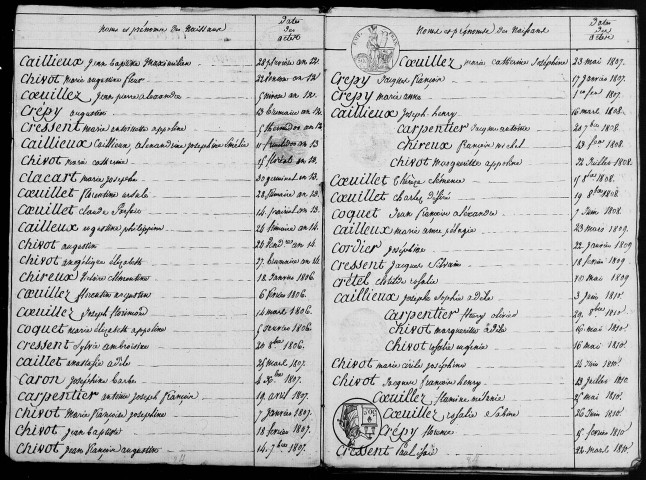 Noms et prénoms des Naissans
Dates des actes
Caillieux Jean baptiste Maximilien 28 an 12.
Chivot marie augustine fleur 22 an 12.
Cœuillez Jean pierre alexandre 5 nivose an 12.
Crépy augustin 13 brumaire an 12.
Cressent marie antoinette appoline 5 thermidor an 12
Caillieux alexandrine Josephine fructidor an 12.
Chivot marie catherine floréal an 13.
Clacart marie Josephe 30 germinal an 13.
Cœuillet florentine 28 frimaire an 13.
Cœuillet claude 14 prairial an 13.
Cailleux augustine philippine 26 frimaire an 14.
Chivot augustin 26 an 14.
Chivot angélique Elizabeth 27 brumaire an 14.
Chireux clémentine 18 Janvier 1806.
Cœuillez florentin augustin 6 février 1806.
Cœuillez Joseph florimond 14 mars 1806.
Coquet marie Elizabeth appoline 5 1806.
Cressent Sylvie ambroisine 20 8bre 1806.
Caillet anastasie adèle 25 mars 1807.
Caron Josephine barbe 4 Xbre 1807.
Carpentier antoine joseph françois 19 avril 1807.
Chivot Marie françoise Josephine 7 janvier 1807.
Chivot Jean baptiste 18 février 1807.
Chivot Jean françois augustin 14. 7bre 1807.
Noms et prénoms des Naissans
Dates des actes
Cœuillez marie catherine Joséphine 23 mai 1807.
Crepy Jacques françois 17 Janvier 1807.
Crepy marie anne 1807.
Caillieux Joseph henry 16 mars 1808.
Carpentier Jacques antoine 20 7bre 1808.
Chireux françois michel 1808.
Chivot Marguerite appoline 22 Juillet 1808.
Cœuillet Thérèze clémence 15 8bre 1808.
Cœuillet Charles désiré 19 8bre 1808.
Coquet Jean françois aléxandre 7 Juin 1808.
Cailleux marie anne pélagie 23 mars 1809.
Cordier Joséphine 22 Janvier 1809
Cressent Jacques Silvain 18 février 1809
Crétel clotilde rosalie mai 1809
Caillieux Josephe Sophie adèle 3 Juin 1810.
Carpentier fleury olivier 29. 8bre 1810.
Chivot margueritte adèle 16 mai 1810.
Chivot rosalie eugénie 16 mai 1810.
Chivot marie Josephine 24 Juin 1810.
Chivot Jacques françois henry 13 Juillet 1810.
Cœuillez flamine mélanie 25 mai 1810.
Cœuillez rosalie Sabine 26 Juin 1810.
Crépy florence 15 février 1810.
Cressent Paul 22 mars 1810.